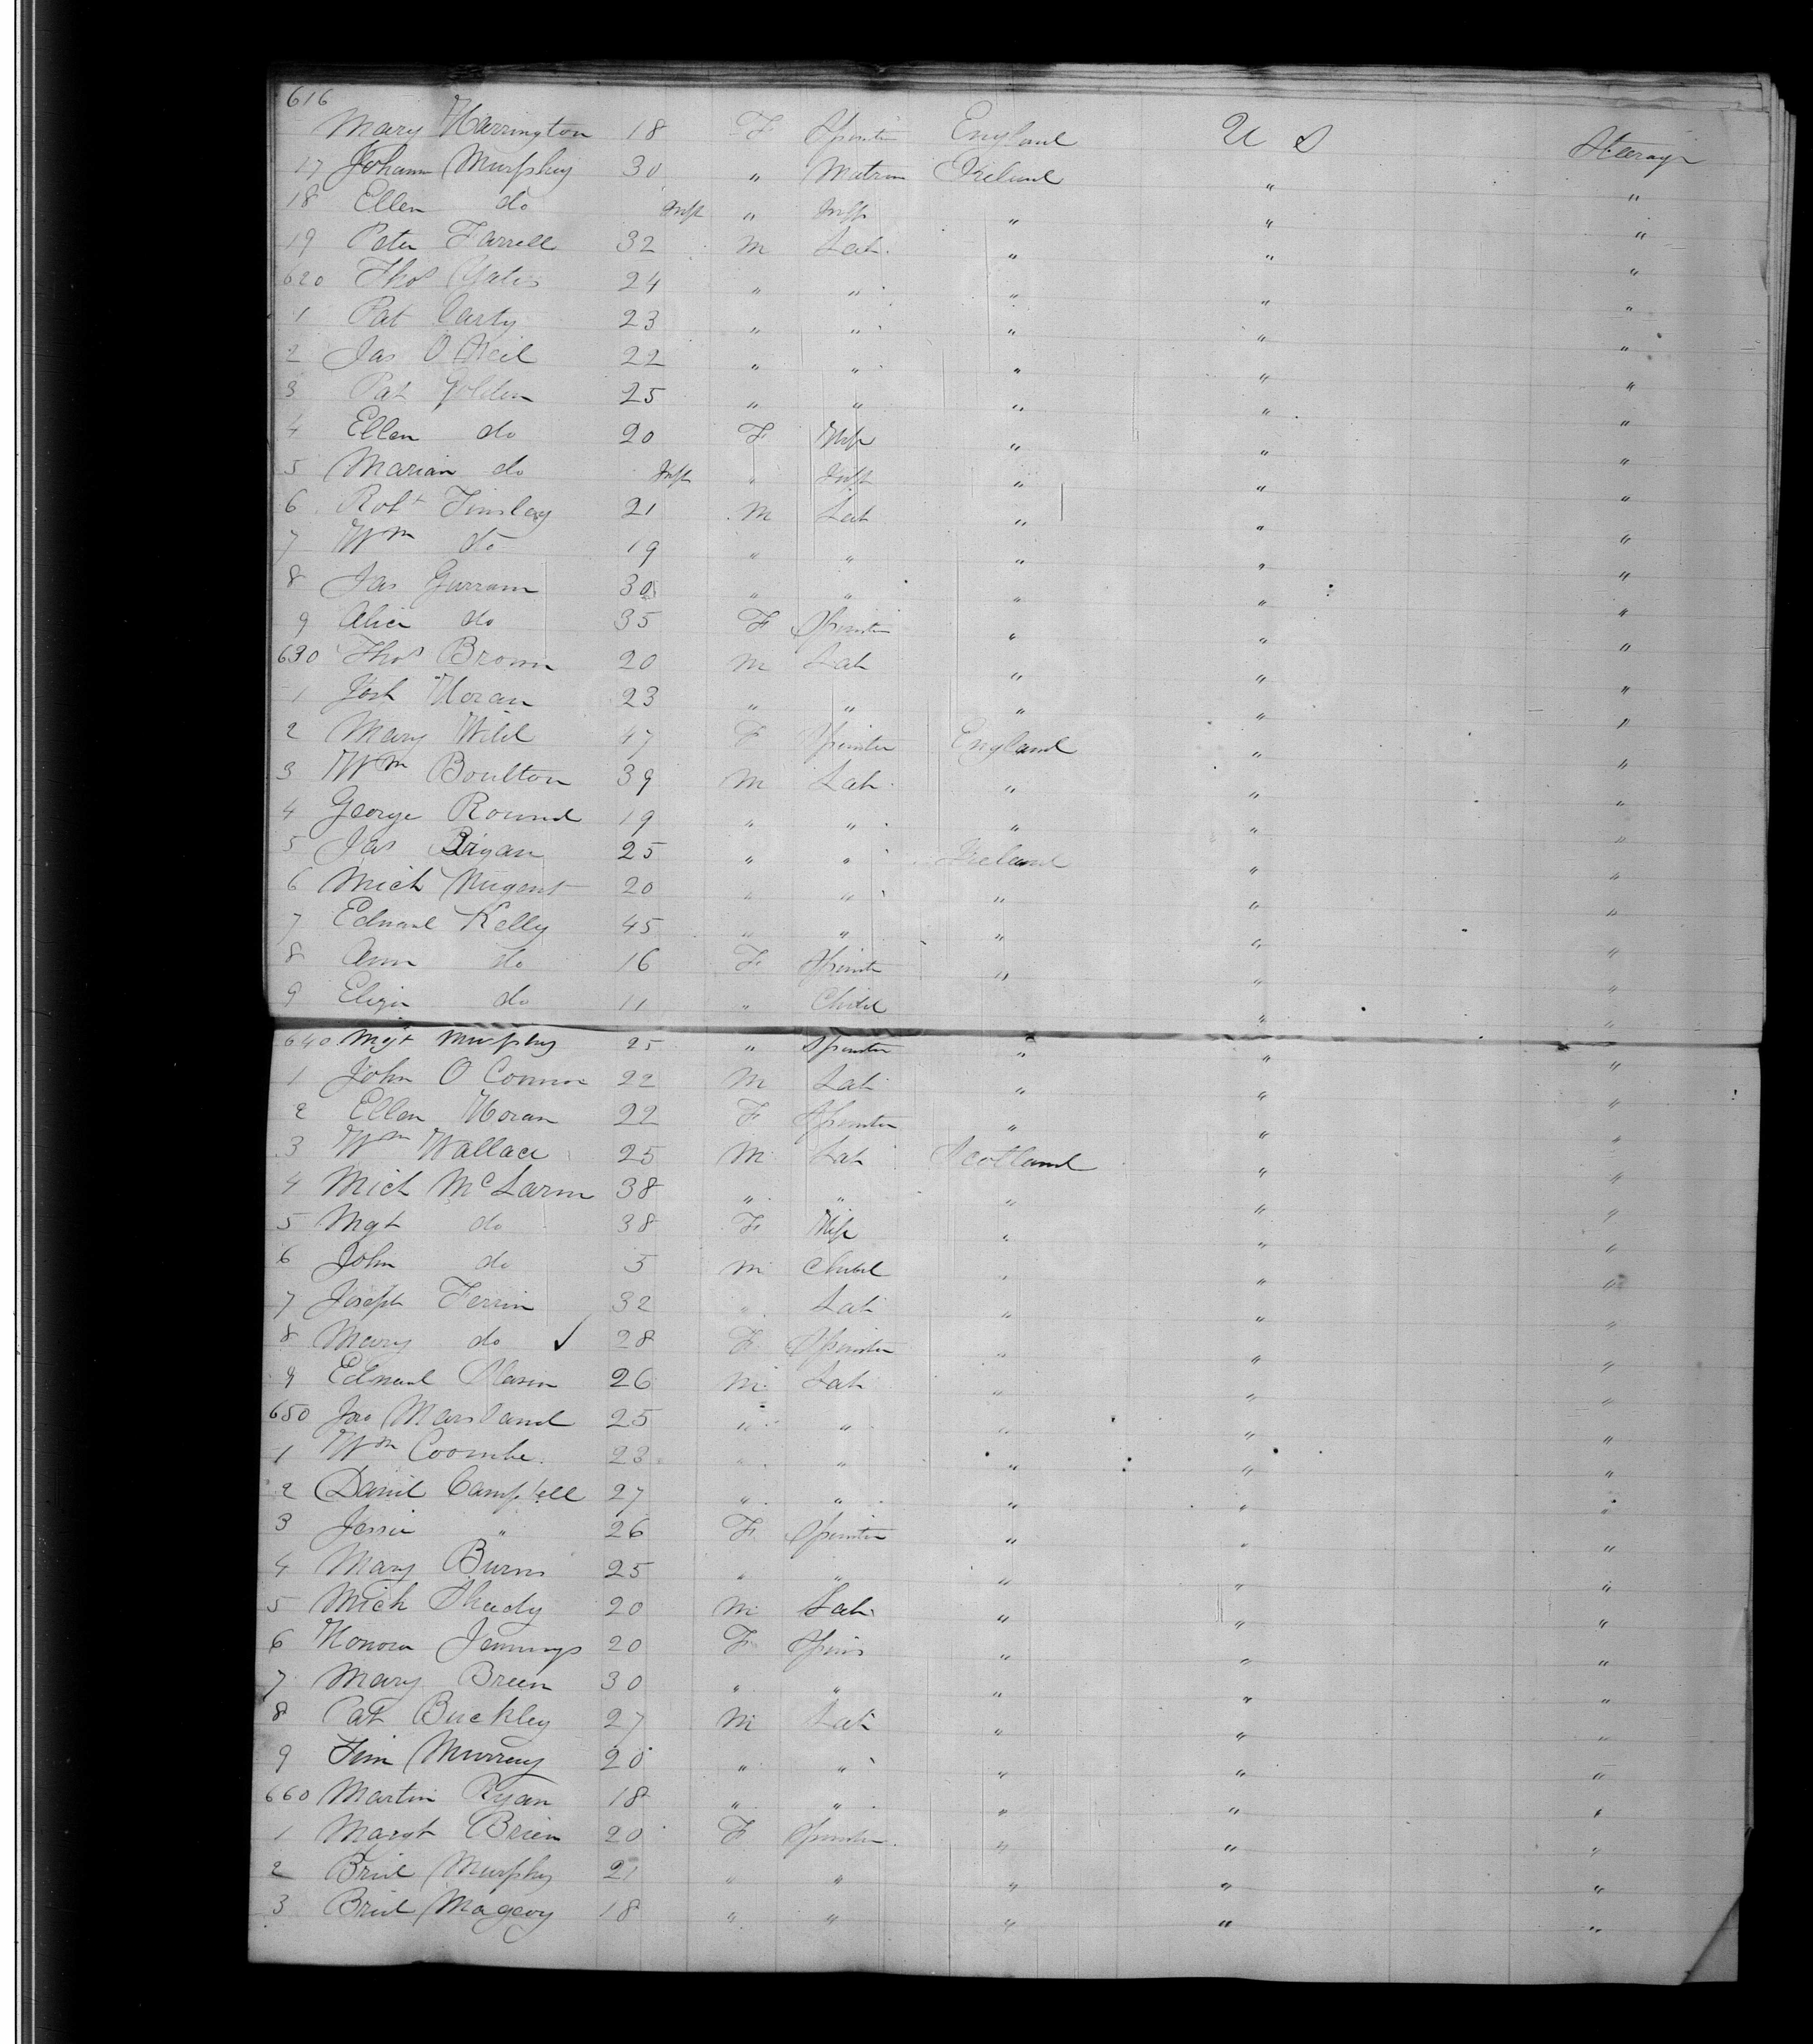 616 Mary Harrington 18 F Spinster England U S Steerage
17 Johann Murphy 30 " Matron Ireland " "
18 Ellen do Inft " Inft " " "
19 Peter Farrell 32 m Lab. " " "
620 Thos Yates 24 " " " " "
1 Pat Carty 23 " " " " "
2 Jas O Neil 22 " " " " "
3 Pat Golden 25 " " " " "
4 Ellen do 20 F Wife " " "
5 Marian do Inft " Inft " " "
6 Robt Tinsley 21 M Lab " " "
7 Wm do 19 " " " " "
8 Jas Gurram 30 " " " " "
9 Alice do 35 F Spinster " " "
630 Thos Brown 20 m Lab " " "
1 Josh Horan 23 " " " " "
2 Mary Wild 47 F Spinster England " "
3 Wm Boulton 39 m Lab. " " "
4 George Round 19 " " " " "
5 Jas Bryan 25 " " Ireland " "
6 Mich Nugent 20 " " " " "
7 Edward Kelly 45 " " " " "
8 Ann do 16 F Spinster " " "
9 Eliza do 11 " Child " "
640 Mgt Murphy 25 " Spinster " " "
1 John O Connor 22 m Lab " " "
2 Ellen Horan 22 F Spinster " " "
3 Wm Wallace 25 M Lab Scotland " "
4 Mich McLarm 38 " " " " "
5 Mgt do 38 F Wife " " "
6 John do 5 m Child " " "
7 Joseph Ferrin 32 " Lab " " "
8 Mary do ✓ 28 F Spinster " " "
9 Edward Slavin 26 m Lab " " "
650 Jno Marsland 25 " " " " "
1 Wm Coombe 23 " " " " "
2 Daniel Campbell 27 " " " " "
3 Jessie " 26 F Spinster " " "
4 Mary Burns 25 " " " " "
5 Mich Sheedy 20 m Lab " " "
6 Honora Jennings 20 F Spins " " "
7 Mary Breen 30 " " " " "
8 Pat Buckley 27 m Lab " " "
9 Tim Murray 20 " " " " "
660 Martin Ryan 18 " " " " "
1 Margt Brien 20 F Spinster " " "
2 Brid Murphy 21 " " " " "
3 Brid Mageoy 18 " " " " "